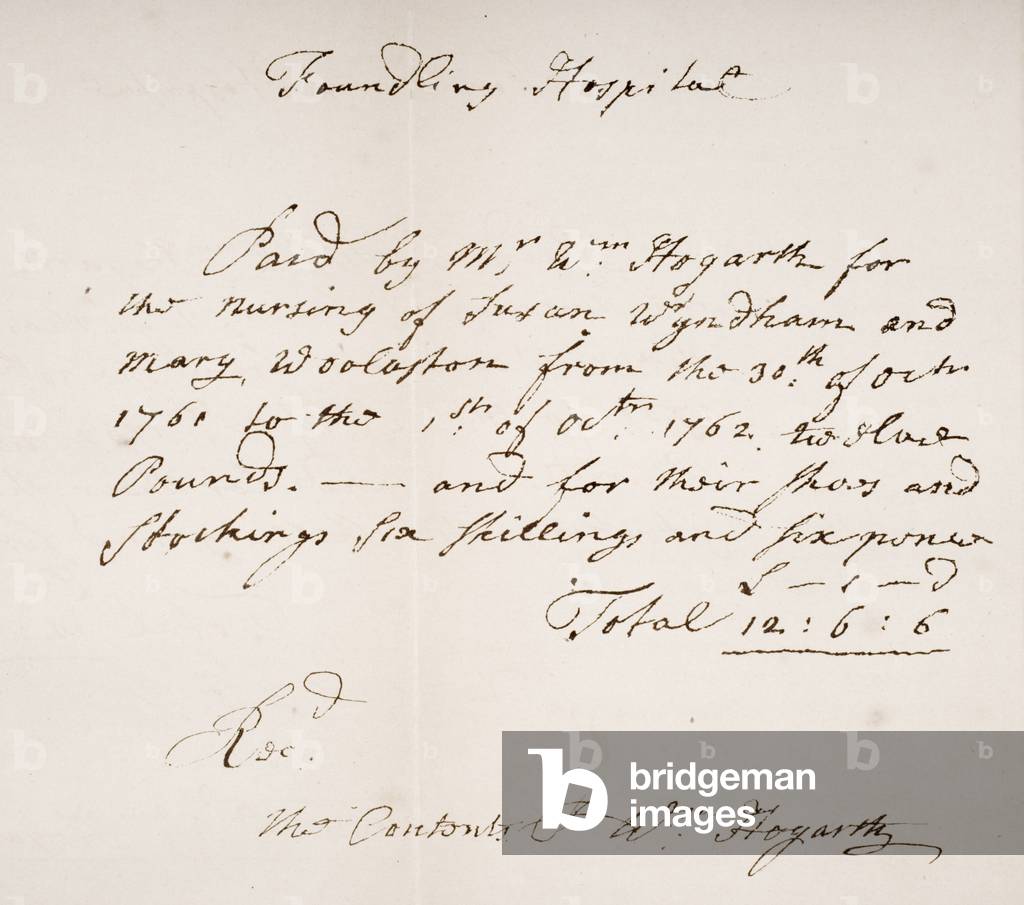 Foundling Hospital
Paid by Mr Wm Hogarth for
the nursing of Susan Wyndham and
Mary Woolaston from the 30th of octr
1761 to the 1st of octr 1762. twelve
Pounds. — and for their shoes and
Stockings Six shillings and six pence
L — s — d
Total 12 : 6 : 6
Recd
the Contents Wm Hogarth
b bridgeman images